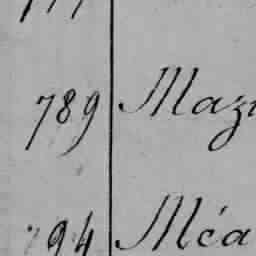 789 Maz
94 Mća